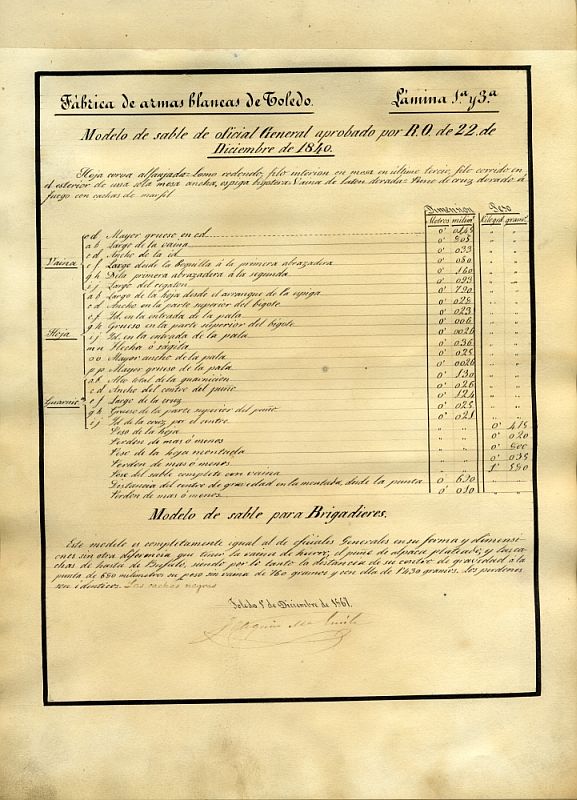 Fábrica de armas blancas de Toledo.
Lámina 1.ª y 3.ª
Modelo de sable de oficial General aprobado por R.O. de 22. de
Diciembre de 1840.
Hoja corva alfanjada: Lomo redondo, filo interior en mesa en último tercio, filo corrido en
el esterior de una sola mesa ancha, espiga bigotera. Vaina de laton dorada. Puño de cruz dorado á
fuego con cachas de marfil
Dimension Peso
Metros milim.s Kilogs. grams.
Vaina
c d Mayor grueso en cd 0' 0145
a b Largo de la vaina 0' 805
c d Ancho de la id. 0' 033
e f Largo desde la boquilla á la primera abrazadera 0' 080
g h De la primera abrazadera á la segunda 0' 160
i j Largo del regaton 0' 093
Hoja
a b Largo de la hoja desde el arranque de la espiga 0' 790
c d Ancho en la parte superior del bigote 0' 028
e f Id. en la entrada de la pala 0' 023
g h Grueso en la parte superior del bigote 0' 006
i j Id. en la entrada de la pala 0' 0026
m n Flecha ó ságita 0' 036
o o Mayor ancho de la pala 0' 025
p p Mayor grueso de la pala 0' 0026
Guarnic.on
a b Alto total de la guarnicion 0' 130
c d Ancho del centro del puño 0' 026
e f Largo de la cruz 0' 124
g h Grueso de la parte superior del puño 0' 025
i j Id. de la cruz por el centro 0' 021
Peso de la hoja 0' 415
Perdon de mas ó menos 0' 020
Peso de la hoja montada 0' 800
Perdon de mas ó menos 0' 035
Peso del sable completo con vaina 1' 590
Distancia del centro de gravedad en la montada, desde la punta 0 630
Perdon de mas ó menos 0' 030
Modelo de sable para Brigadieres.
Este modelo es completamente igual al de oficiales Generales en su forma y dimensi
ones sin otra diferencia que tiene la vaina de hierro, el puño de alpaca plateado, y las ca-
chas de hasta de Bufalo, siendo por lo tanto la distancia de su centro de gravedad á la
punta de 680 milimetros su peso sin vaina de 760 gramos y con ella de 1'430 gramos. Los perdones
son identicos. Las cachas negras
Toledo 1º de Diciembre de 1861.